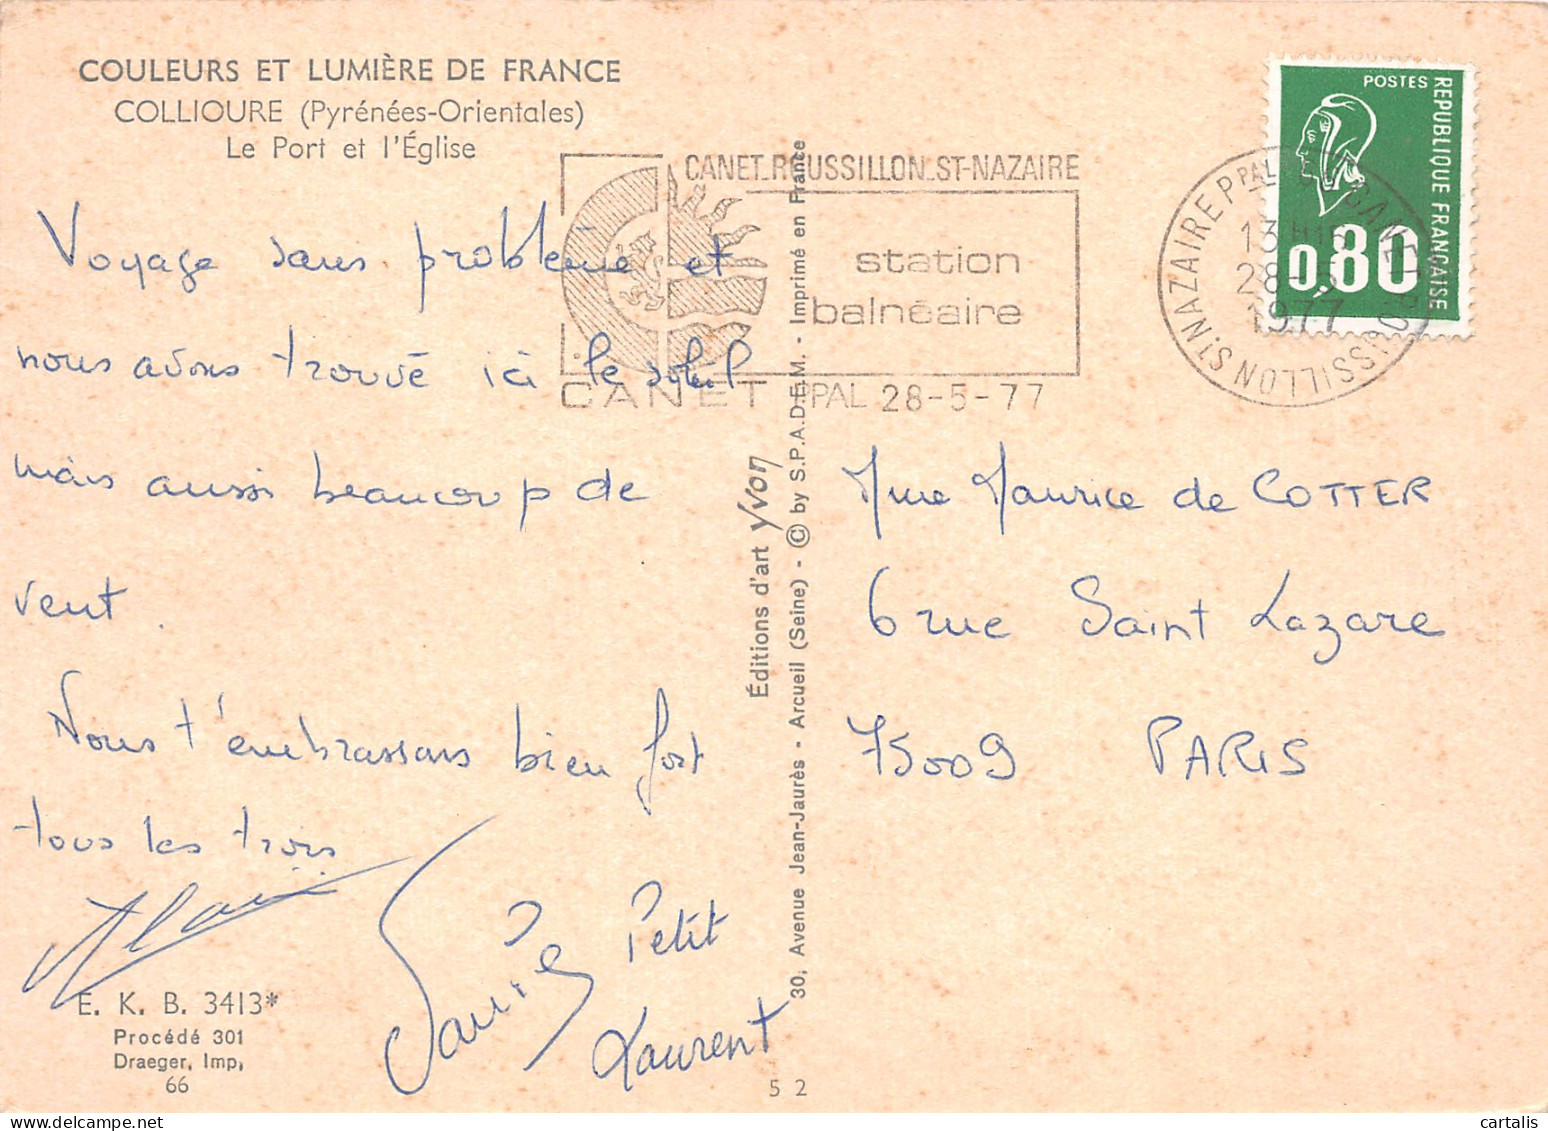 COULEURS ET LUMIÈRE DE FRANCE
COLLIOURE (Pyrénées-Orientales)
Le Port et l'Église
Voyage sans problème et
nous avons trouvé ici le soleil
mais aussi beaucoup de
vent.
Nous t'embrassons bien fort
tous les trois
Alain
Petit
Laurent
E. K. B. 3413*
Procédé 301
Draeger, Imp,
66
5 2
Éditions d'art yvon
30, Avenue Jean-Jaurès - Arcueil (Seine) - © by S.P.A.D.E.M. - Imprimé en France
CANET-ROUSSILLON-ST-NAZAIRE
station
balnéaire
CANET PPAL 28-5-77
13H15
28-5
1977
POSTES
REPUBLIQUE FRANÇAISE
0,80
Mme Maurice de COTTER
6 rue Saint Lazare
75009 PARIS
cartalis